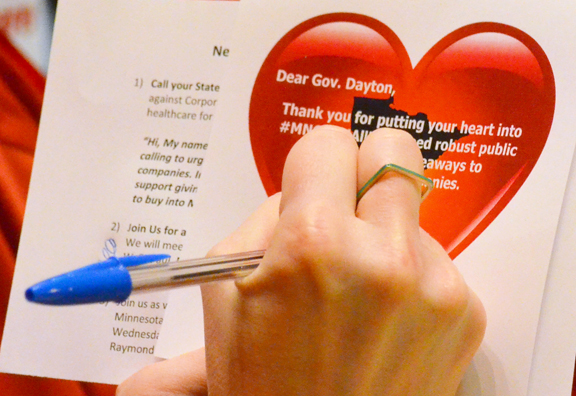 Ne
1) Call your State
against Corpor
healthcare for
"Hi, My name
calling to urg
companies. I
support givin
to buy into M
2) Join Us for a
We will mee
Join us as v
Minnesota
Wednesda
Raymond
Dear Gov. Dayton,
Thank you for putting your heart into
#MN robust public
eaways to
nies.